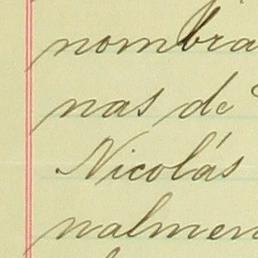 nombra
nas de
Nicolás
nalmen